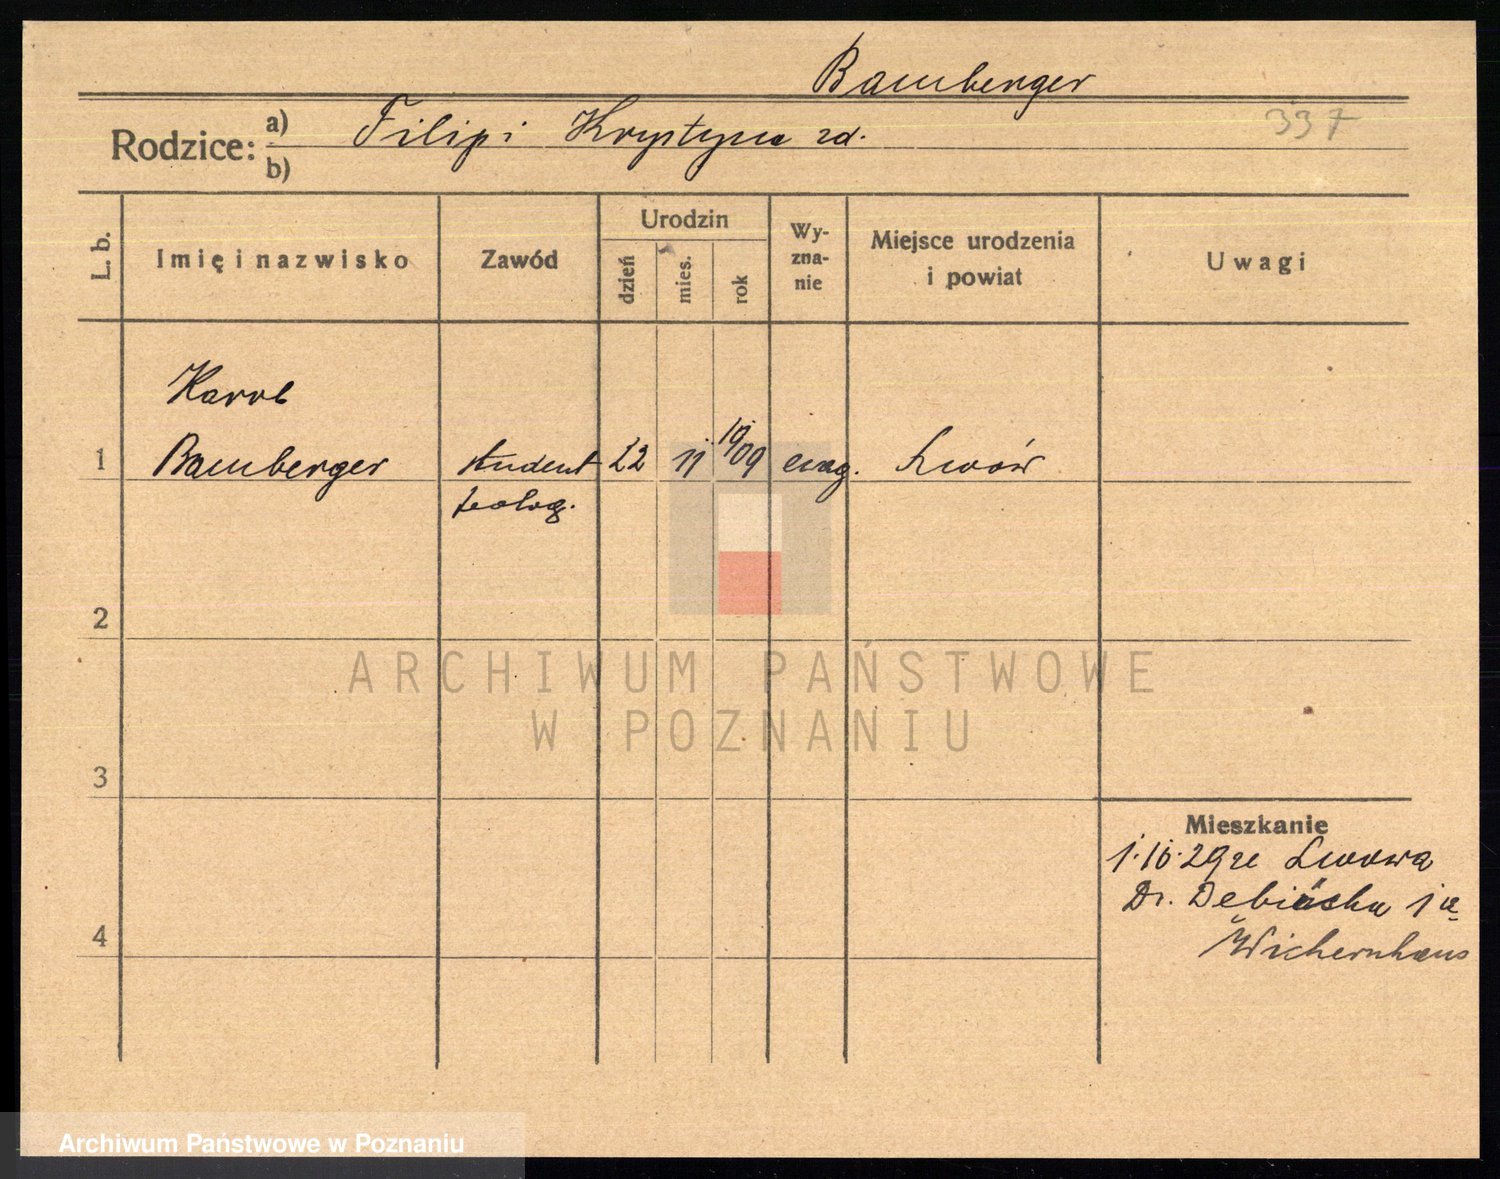 Bamberger
Rodzice: a) Filip i Krystyna zd.
b)
337
L. b.
Imię i nazwisko
Zawód
Urodzin
dzień
mies.
rok
Wy-
zna-
nie
Miejsce urodzenia
i powiat
Uwagi
Karol
1 Bamberger student 22 11 09 ewag. Lwów
teolog.
2
3
4
Mieszkanie
1.10.29 ze Lwowa
Dr. Dębińska
Wichernhaus
ARCHIWUM PAŃSTWOWE
W POZNANIU
Archiwum Państwowe w Poznaniu